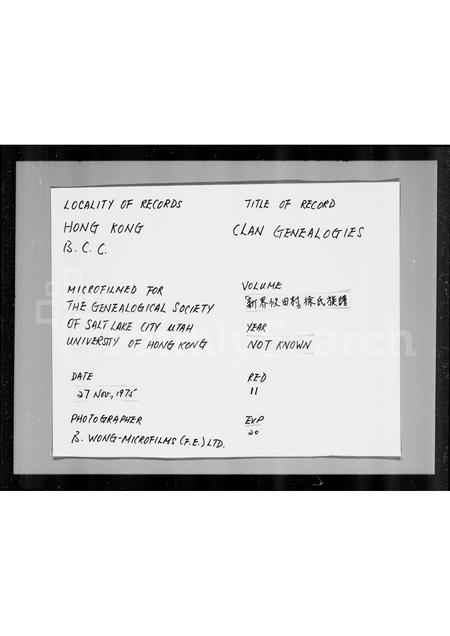 LOCALITY OF RECORDS
HONG KONG
B. C. C.
TITLE OF RECORD
CLAN GENEALOGIES
MICROFILMED FOR
THE GENEALOGICAL SOCIETY
OF SALT LAKE CITY UTAH
UNIVERSITY OF HONG KONG
VOLUME
新界 田村 徐氏族譜
YEAR
NOT KNOWN
DATE
27 NOV, 1975
RED
11
PHOTOGRAPHER
B. WONG-MICROFILMS (F.E.) LTD.
EXP
20
FamilySearch